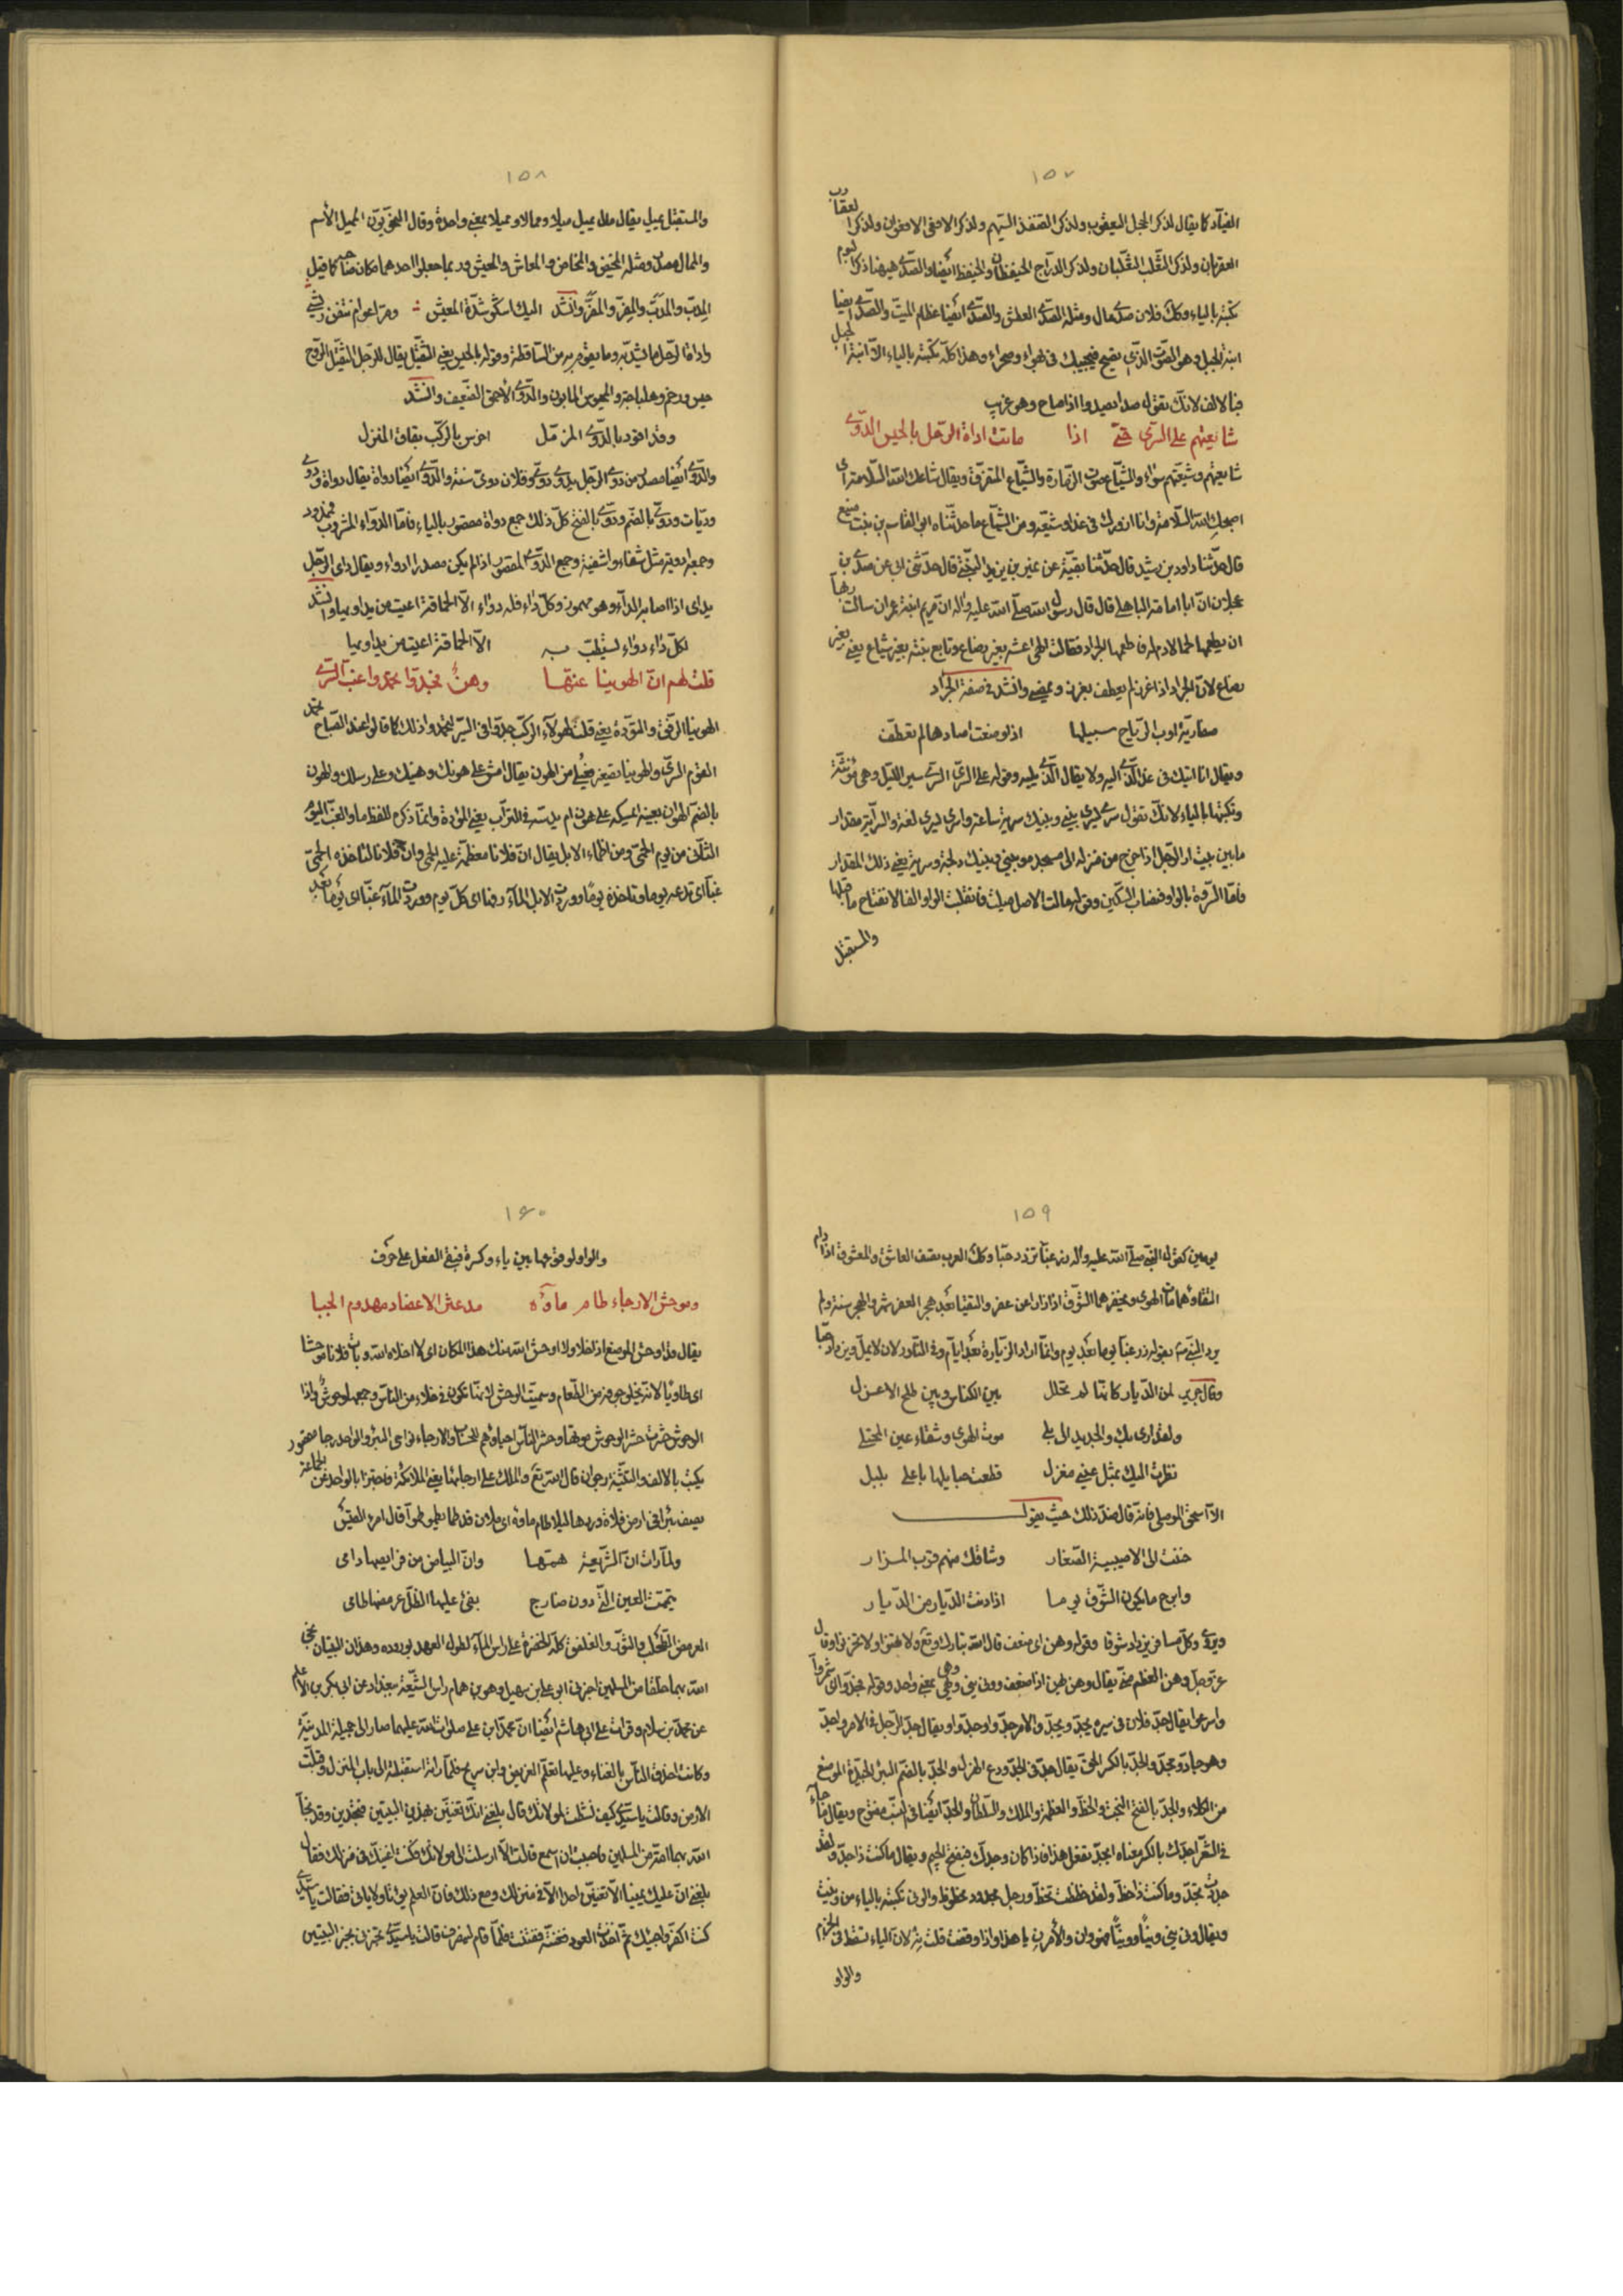 ١٥٧
الفياد كما يقال لذكر الحجل اليعقوب ولذكر الضفدع السهم ولذكر الافعى الافعوان ولذكر العقارب
العقربان ولذكر الثعلب الثعلبان ولذكر الدراج الحيقطان والحيقط ايضا والصدى هيهنا ذكر البوم
تكتبه بالياء وكل فلان صدى مال ومثله الصدى العطش والصدى ايضا عظام الميت والصدى ايضا
ابنة الجبل وهو الصوت الذى يصيح فيجيبك فى هواء وصحراء وهذا كله تكتبه بالياء الا ابنة الجبل
فبالالف لانك تقول صدا يصدوا اذا صاح وهو غريب
شايعتهم على السرى حتى اذا مالت اداة الرحل بالجبس الدوى
شايعتهم وشيعتهم سواء والشياع صوت الزمارة والشياع المتفرق ويقال شاعك الله السلامة اى
اصحبك الله السلامة وانا ازورك فى غد او شيعه ومن الشياع ما حدثناه ابو القاسم بن بنت منيع
قال حدثنا داود بن رشيد قال حدثنا بقية عن نمير بن يزيد قال حدثنى ابى عن صدى بن
عجلان ان ابا امامة الباهلى قال قال رسول الله صلى الله عليه واله ان مريم ابنة عمران سالت ربها
ان يطعمها لحما لا دم له فاطعمها الجراد فقالت اللهم اعشه بغير رضاع وتابع بينه بغير شياع يعنى بغير
رضاع لان الجراد اذا غرز لم يعطف بغرز ويمضى وانشد فى صفة الجراد
سبيلها
ويقال انا اتيك فى غد الذى اليه ولا يقال الذى يليه وقوله على السرى السرى سير الليل وهى مؤنثة
وتكتبها بالياء لانك تقول سرى يسرى بينى وبينك سرية ساعة واسرى يسرى لغة والسراية مقدار
ما بين بيت
فاما السروة بالواو فنصاب السكين وقوله مالت الاصل ميلت فانقلبت الواو الفا لانفتاح ما قبلها
والمستقبل
١٥٨
والمستقبل يميل يقال مال يميل ميلا وممالا ومميلا بمعنى واحد وقال النحويون المميل الاسم
والممال مصدر ومثله المحيض والمحاض والمعاش والمعيش وربما جعلوا احدهما مكان صاحبه كما قيل
المدب والمدب والمفر والمفر وانشد اليك اشكو شدة المعيش ومر اعوام نتفن ريشى
واداة الرحل ما يشد به وما يقوم به من الساقطة وقوله بالجبس يعنى الثقيل يقال للرجل الثقيل الروح
جبس والدوى الاحمق الضعيف وانشد
وقد اقود بالدوى المزمل اخرس بالركب بقاق المنزل
والدوى ايضا مصدر من دوى الرجل يدوى دوى وفلان دوى سنة والدوى ايضا دواة يقال دواة ودوى
ودويات ودوى بالضم ودوى بالفتح كل ذلك جمع دواة مقصور بالياء فاما الدواء المشروب فممدود
وجمعه ادوية مثل شفاء واشفية وجمع الدوى المقصور اذا لم يكن مصدرا ادواء ويقال داى الرجل
يداى اذا اصابه الداء وهو مهموز وكل داء فله دواء الا الحماقة اعيت من يداويها وانشد
لكل داء دواء يستطب به الا الحماقة اعيت من يداويها
قلت لهم ان الهوينا غبتها وهن فجدوا تحمدوا غب السرى
الهوينا الرفق والتؤدة يعنى قلت لهؤلاء الركب جدوا فى السير لتحمدوا ذلك كما قالوا عند الصباح يحمد
القوم السرى والهوينا تصغير فعلى من الهون يقال امش على هونك وهينك وعلى رسلك والهون
بالضم الهوان بعينه ايمسكه على هون ام يدسه فى التراب يعنى الموؤدة وانما ذكره للفظ ما والغب اليوم
الثانى من يوم الحمى ومن اظماء الابل يقال ان فلانا معظمة عليه الحمى وان فلانا لتاخذه الحمى
غبا اى تدعه يوما وتاخذه يوما ووردت الابل الماء رفها اى كل يوم ووردت الماء غبا اى يوما بعد
١٥٩
يومين كقول النبى صلى الله عليه وآله زر غبا تزدد حبا وكل العرب يصف العاشق والمعشوق اذا دام
التقاؤهما مات الهوى
يرد النبى ص بقوله زر غبا يوما بعد يوم وانما اراد الزيارة بعد ايام وفى النادر لان لا يمل ويزداد حبا
وقال جرير لمن الديار كانها لم تحلل بين الكناس وبين طلح الاعزل
ولقد ارى بك والجديد الى بلى موت الهوى وشفاء عين المجتلى
نظرت اليك بمثل عينى مغزل قطعت حبايلها باعلى يليل
الا اسحق الموصلى فانه قال ضد ذلك حيث يقول
حننت الى الاصيبية الصغار وشاقك منهم قرب المزار
وابرح ما يكون الشوق يوما اذا دنت الديار من الديار
ويروى وكل مسافر يزداد شوقا وقوله وهن اى ضعف قال الله تبارك وتعالى ولا تهنوا ولا تحزنوا وقال
عز وجل وهن العظم منى يقال وهن يهن اذا ضعف وونى ينى ووهى يهى بمعنى واحد وقوله فجدوا اى شمروا
واسرعوا يقال جد فلان فى سيره يجد ويجد والامر جد واجدوا ويقال جد الرجل فى الامر واجد
وهو جاد ومجد والجد بالكسر الحق يقال جد فى الجد ودع الهزل والجد بالضم البئر الجيدة الموضع
من الكلاء والجد بالفتح البخت والحظ والعظمة والملك والسلطان والجد ايضا فى النسب مفتوح ويقال ما جاء
فى الشعر اجدك بالكسر معناه ابجد تفعل هذا فاذا كان وجدك فبفتح الجيم ويقال ما كنت ذا جد ولقد
جددت تجد وما كنت ذا حظ ولقد حظظت تحظ ورجل مجدود محظوظ والونى تكتبه بالياء من ونيت
ويقال ونى ينى ونيا وونيا فهو وان والامر ن يا هذا واذا وقفت قلت نه لان الياء تسقط فى الجزم
والواو
١٦٠
والواو لوقوعها بين ياء وكسرة فبقى الفعل على حرف
وموحش الارجاء طام ماؤه مدعثر الاعضاد مهدوم الجبا
يقال قد اوحش الموضع اذا خلا ولا اوحش الله منك هذا المكان اى لا اخلاه الله وبات فلان موحشا
اى طاويا لانه يخلو جوفه من الطعام وسميت الوحش لانها تكون فى خلاء من الناس وجمعها وحوش واذا
الوحوش حشرت حشر الوحوش موتها وحشر الناس احياؤهم للحساب والارجاء نواحى البئر والواحد رجا مقصور
يكتب بالالف والتثنية رجوان قال الله تع والملك على ارجائها يعنى الملائكة فاجتزا بالواحد عن الجماعة
يصف بئرا فى ارض فلاة وردها ليلا طام ماؤه اى ملان قد طما يطمو طموا قال امرء القيس
ولما رات ان الشريعة همها وان البياض من فرايصها دامى
تيممت العين التى دون ضارج يفئ عليها الظل عرمضها طامى
العرمض الطحلب والثور والغلفق كله الخضرة على راس الماء لطول العهد بوروده وهذان البيتان نجى
الله بهما خلقا من المسلمين اخبرنى ابو على بن سهيل وهو بن همام راس الشيعة ببغداد عن ابى بكر بن الاعلم
عن محمد بن سلام وقرات على ابى هاشم ايضا ان محمد ابن على صلوات الله عليهما صار الى جميلة المدنية
وكانت احذق الناس بالغناء وعليها تعلم الغريض وابن سريج فلما راته استقبلته الى باب المنزل وقبلت
الارض وقالت يا سيدى كيف نشطت لمولاتك قال بلغنى انك تغنين بهذين البيتين وقد نجا
الله بهما امة من المسلمين فاحببت ان اسمع قالت الا ارسلت الى مولاتك فكنت اغنيك فى منزلك فقال
بلغنى ان عليك يمينا الا تغنين احدا الا فى منزلك ومع ذلك فان العلم يؤتا ولا ياتى فقالت يا سيدى
كنت اكفر واجيئك ثم اخذت العود فغنته فلما قام لينصرف قالت يا سيدى تخبرنى بخبر البيتين